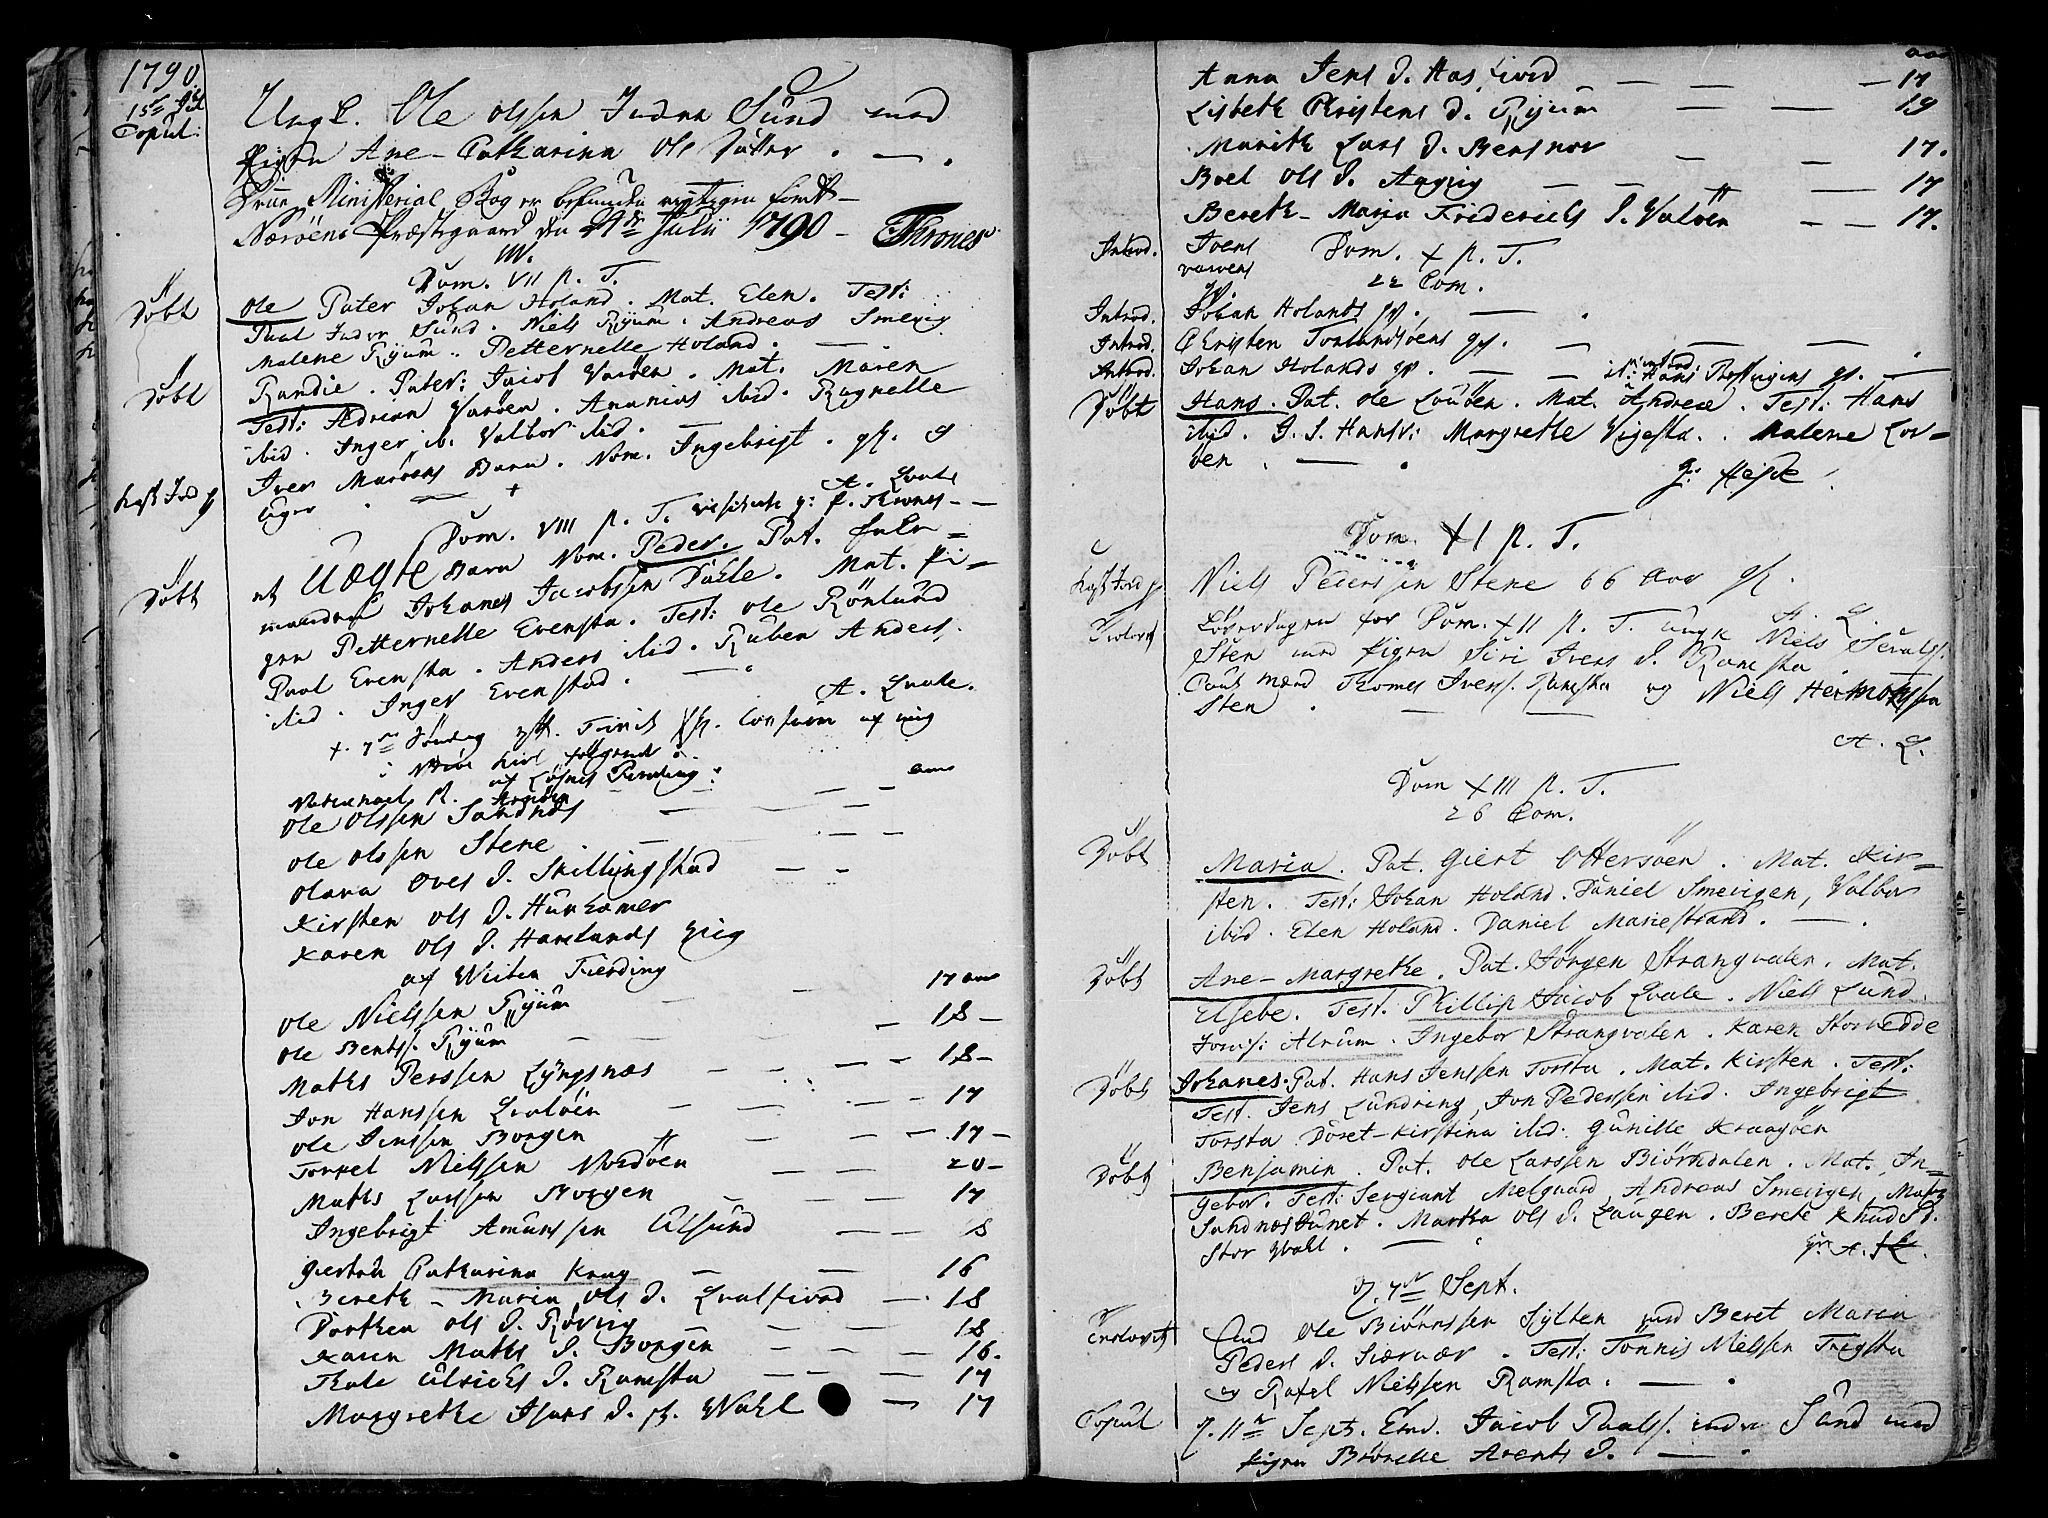 1790
15de Jul
Copul:
Ungk. Ole Olssen Indre Sund med
Pigen Ane-Catharina Ols Datter . — .
Ministerial Bog er befunden rigtigen ført
Nærøens Præstegaard den 21de Julii 1790 – Thrones
Dom. VII p. T.
Døbt
Ole Pater Johan Holand. Mat. Elen. Test:
Paul Indre Sund. Niels Ryum. Andreas Smevig
Malene Ryum. Petternelle Holand. —
Døbt
Randie. Pater: Jacob Varøen. Mat. Maren
Test: Adrian Varøen. Ananias ibid. Ragnelle
ibid. Inger ib. Valbor ibid. —
Kast Jord p
Iver Marøens Barn. Nom. Ingebrigt. gl. 9
Uger
A. Qvale
Dom. VIII p. T. visiterte H: P. Thrones –
Døbt
et UÆgte Barn Nom. Peder. Pat.
Johanes Jacobsen Dahle. Mat. Pi=
gen Petternelle Evensta. Test: Ole Rønlund
Paul Evensta. Anders ibid. Ruben Anders.
ibid. Inger Evenstad. —
A. Qvale.
7de Søndag Trinit confirm af mig
i Kirk følgende:
af Løsnes Fierding:
aar
Ole Olssen Sandnes — —
Ole Olssen Stene — —
Olava Oves D. Skillingstad — —
Kirsten Ols D. Hunhamer
Karen Ols D. Hamlands Eng
af Weiten Fierding
Ole Nielssen Ryum — 17 aar
Ole Bentss. Ryum — 18 –
Maths Perssen Lyngsnæs — 18 –
Jon Hanssen Qvaløen — 17
Ole Jenssen Borgen — 17 –
Torkel Nielssen Nordøen — 20 –
Maths Larssen Borgen — 17
Ingebrigt Amunssen Ulsund — 8
Giertrud Catharina Krag — 16
Bereth – Maria Ols D. Qvalfiord — 18
Dorthea Ols D. Røvig — 18
Karen Maths D. Borgen — 16.
Thale Ulrichs D. Ramsta — 17
Margrethe Isacs D. Wahl — 17
aar
Anna Jens D. Hasfiord — 17
Lisbeth Christens D. Ryum — 19
Marith Lars D. Bersnov — 17.
Boel Ols D. Aagvig — 17
Bereth-Maria Friderichs D. Valøen — 17.
Introd.
Ivers
Dom. X p. T.
22 Com.
Introd.
Johan Holands gv. — .
Introd.
Christen Torlandsøens gv. — — — .
Introd.
Johan Holands gv. — it: introd. Hans gv. —
Døbt
Hans. Pat. Ole Louøen. Mat. Andrea. Test: Hans
ibid. Hans: Margrethe Vigesta. Malene Lov=
øen . — .
H: Hejde
Dom. XI p. T.
Kast Jord p
Niels Pederssen Stene 66 Aar gl.
A. Q.
Trolovet
Løverdagen for Dom. XII p. T. Ungk Niels Sivals.
Sten med Pigen Siri Ivers D. Ramsta
Caut Mænd Thomes Iverss. Ramsta og Niels Hermonssen
Sten . — —
A. Q.
Dom XIII p. T.
26 Com.
Døbt
Maria. Pat. Giert Ottersøen. Mat. Kir=
sten. Test: Johan Holand. Daniel Smevigen, Valbor
ibid. Elen Holand. Daniel Mariestrand. — .
Døbt
Ane-Margrethe. Pat. Jørgen Strangvalen. Mat.
Elsebe. Test. Phillip Jacob Qvale. Niels Lund.
Joris: Alrum. Ingebor Strangvalen. Karen Storredde
Døbt
Johanes. Pat. Hans Jenssen Torsta. Mat. Kirsten. Test:
Test. Jens Lundring, Jon Pedersen ibid. Ingebrigt
Torsta Doret-Kirstina ibid: Gunille Kraagøen
Døbt
Benjamin. Pat. Ole Larssen Biørndalen. Mat. In=
gebor. Test: Sergiant Melgaard, Andreas Smevigen,
Sandnestunet. Martha Ols D. Laugen. Berete Knuds D.
Stor Wahl. — .
D. 7de Sept.
Trolovet
Ole Biørnssen Sylten med Beret Maria
Peders D. Siærvær. Test: Tønnis Nielssen Trigsta
og Rafel Nielssen Ramsta. — .
Copul
D. 11de Sept. Jacob Paals. indre Sund med
Pigen Biørelle Arents D. — .